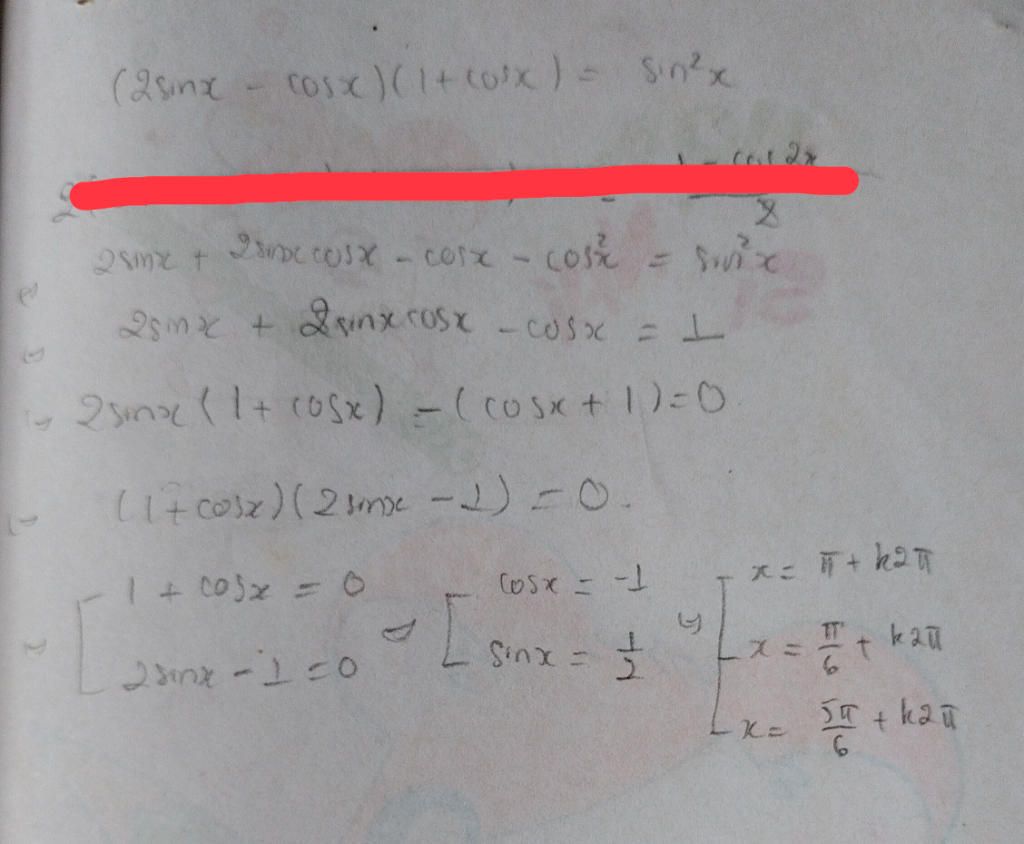 (2sinx - cosx)(1 + cosx) = sin²x
1 - cos2x
2
2sinx + 2sinxcosx - cosx - cos²x = sin²x
⇔ 2sinx + 2sinxcosx - cosx = 1
⇔ 2sinx(1 + cosx) - (cosx + 1) = 0
⇔ (1 + cosx)(2sinx - 1) = 0.
⇔ [ 1 + cosx = 0 ⇔ [ cosx = -1 ⇔ [ x = π + k2π
2sinx - 1 = 0 sinx = 1/2 x = π/6 + k2π
x = 5π/6 + k2π